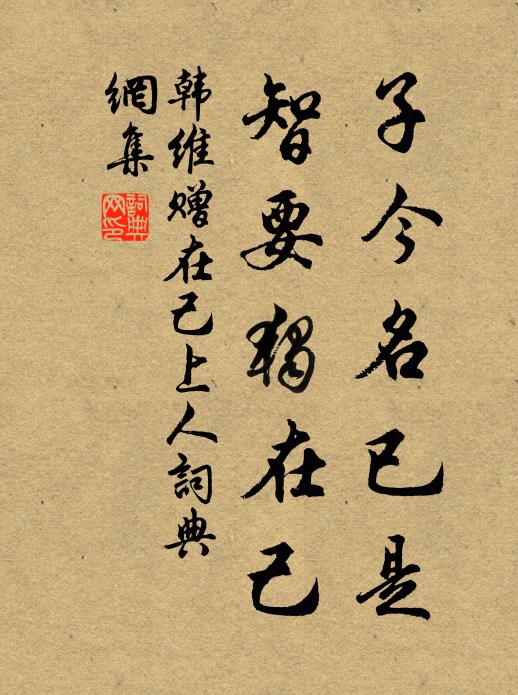 子今名已是
智要独在己
韩维赠在己上人詞典
網集
詞典
网印